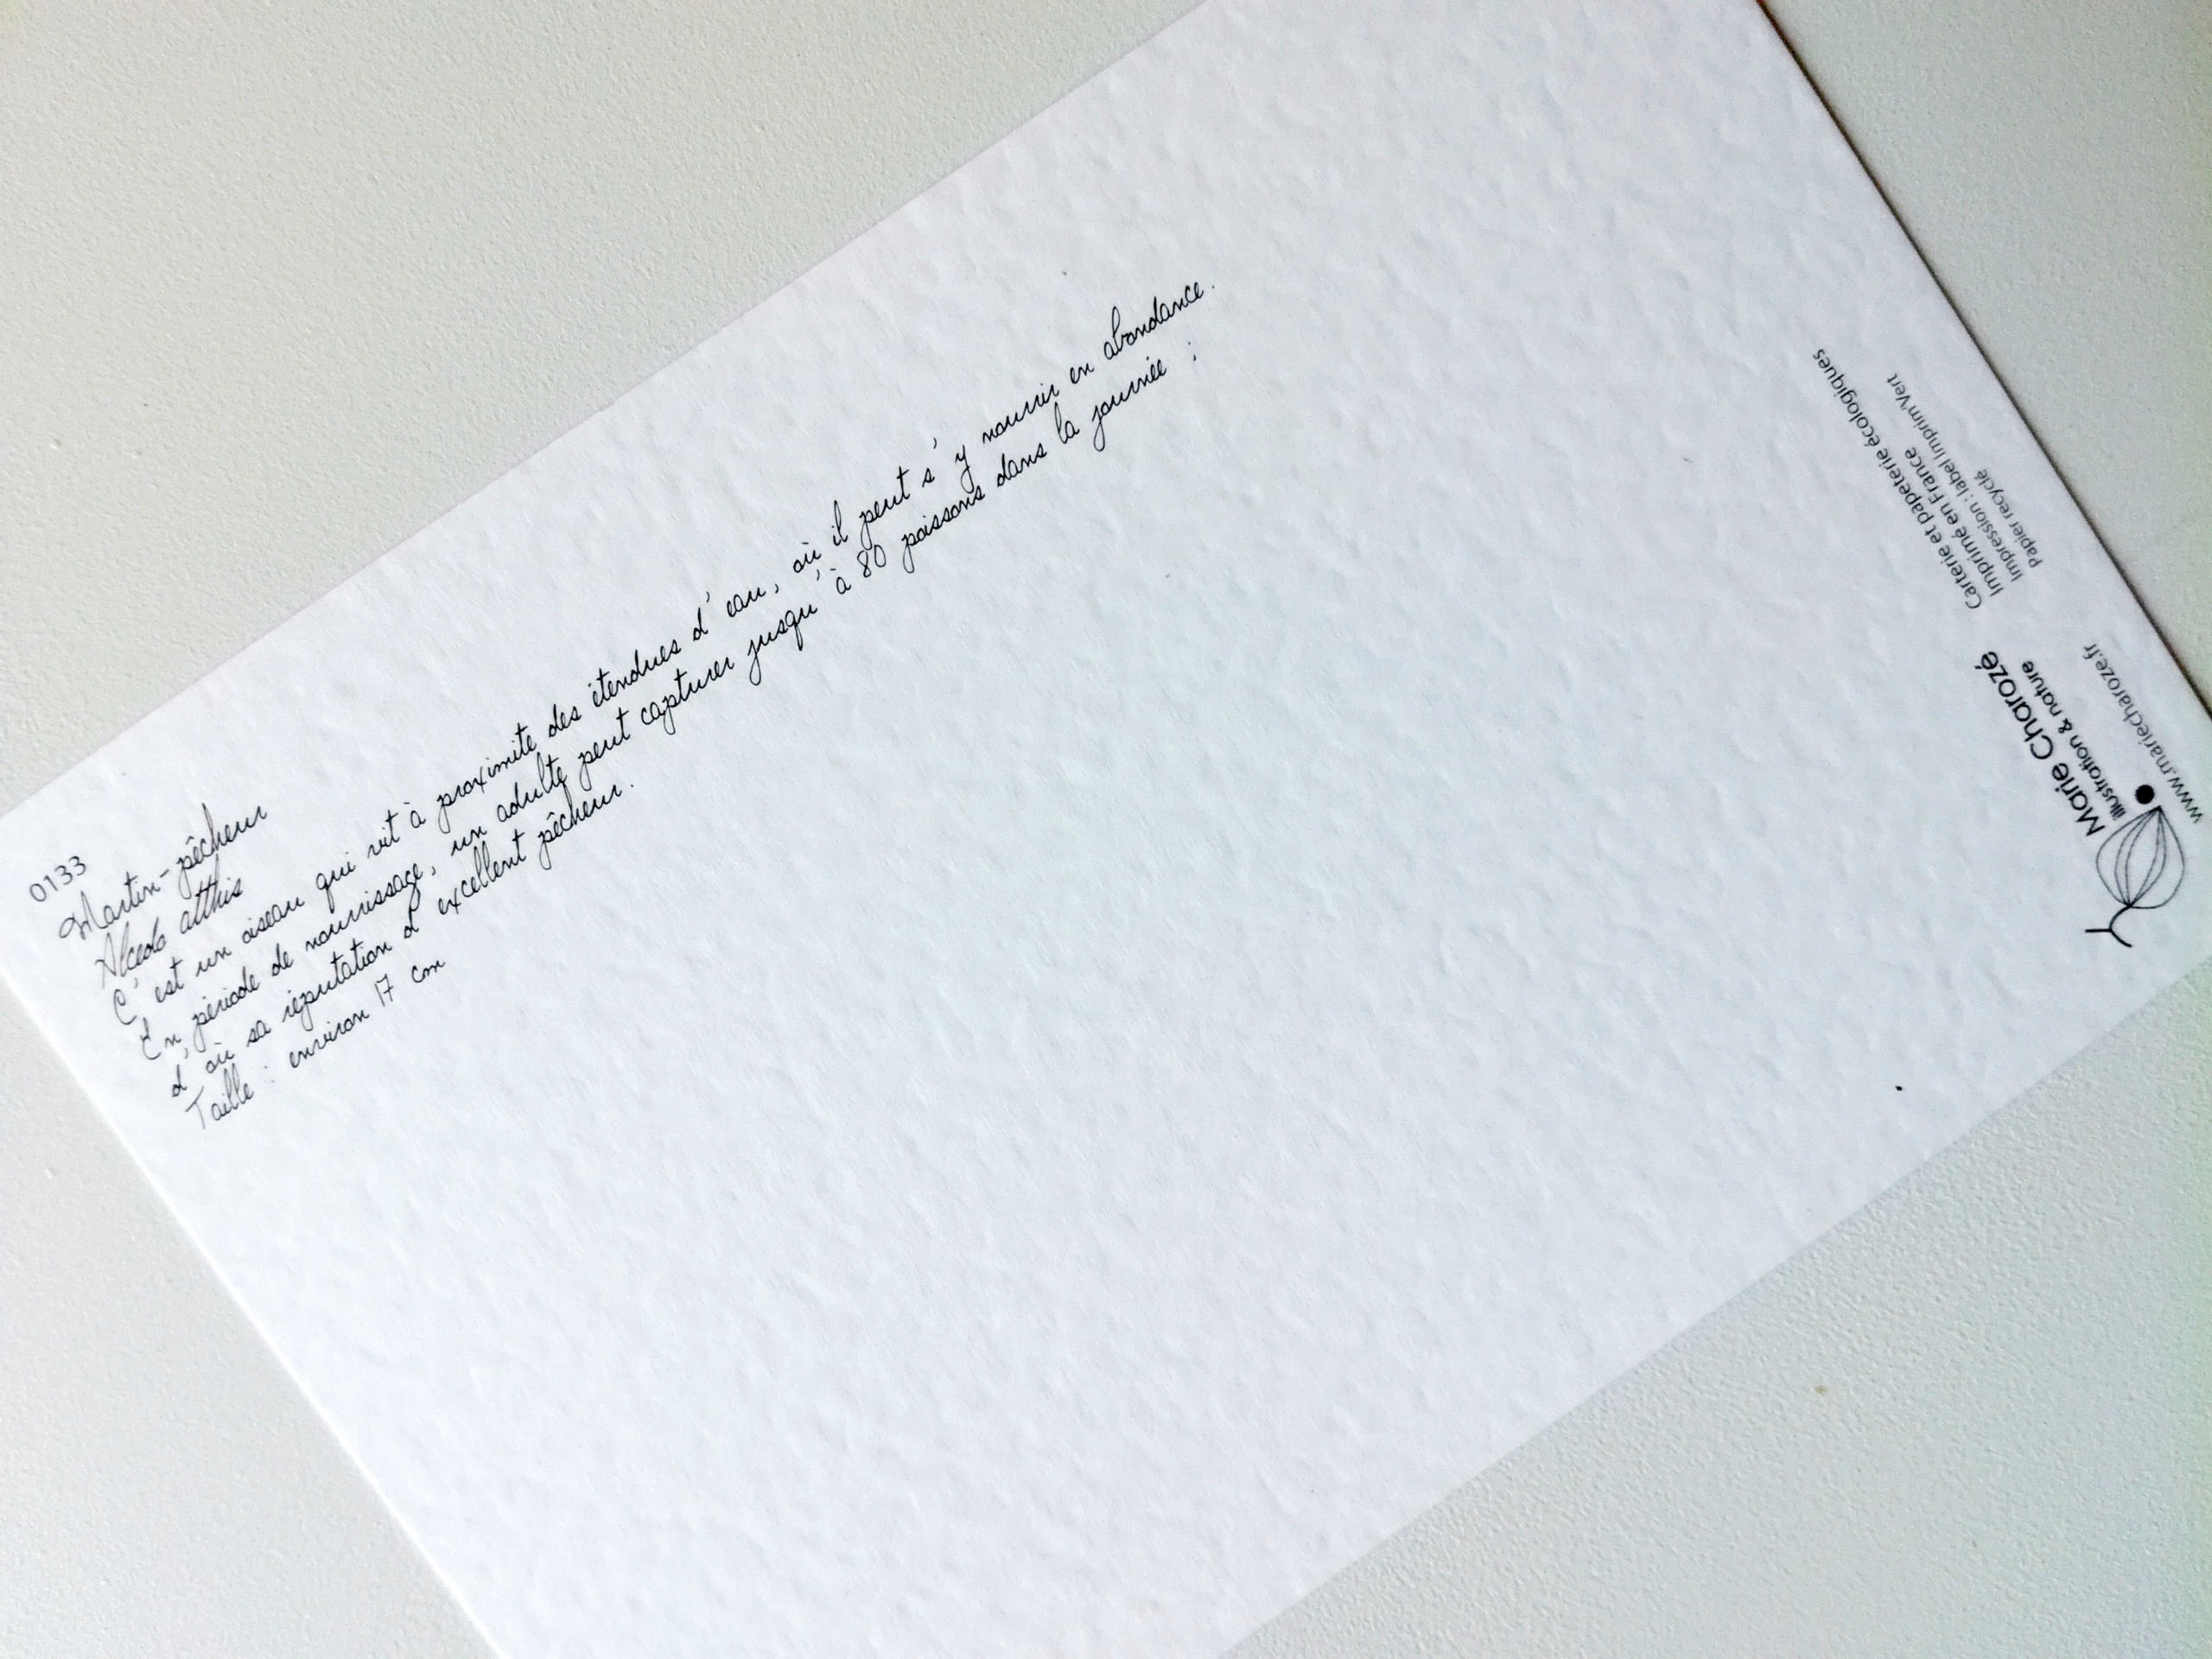 0133
Martin-pêcheur
Alcedo atthis
C'est un oiseau qui vit à proximité des étendues d'eau, où il peut s'y nourrir en abondance.
En période de nourrissage, un adulte peut capturer jusqu'à 80 poissons dans la journée ;
d'où sa réputation d'excellent pêcheur.
Taille : environ 17 cm
Marie Charozé
illustration & nature
www.mariecharoze.fr
Carterie et papeterie écologiques
Imprimé en France
Impression : label Imprim'Vert
Papier recyclé